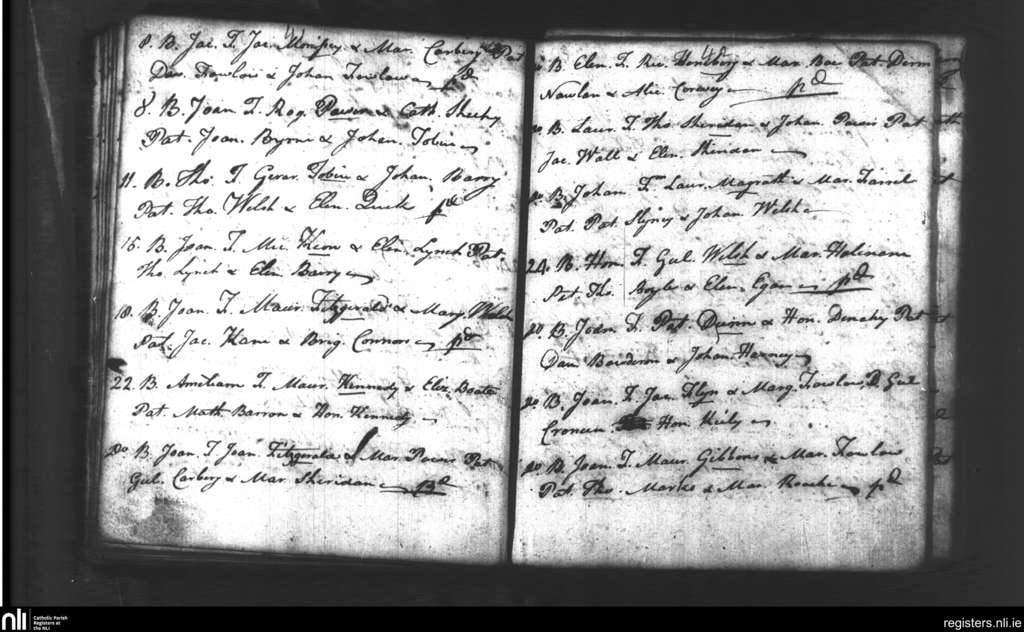 8. B. Jac. F. Jac. Mompey & Mar. Carbery Pat
Dav. Fowlow & Johan Fowlow pd
8. B Joan F. Rog. Dawson & Cath. Sheehy
Pat. Joan. Byrne & Johan. Tobin
11. B. Tho. F. Gerar. Tobin & Johan. Barry
Pat. Tho. Welsh & Elen. Quirk pd
15. B. Joan. F. Mic. Kion & Elin. Lynch Pat.
Tho. Lynch & Elin Barry
18. B. Joan. F. Maur. Fitzgerald & Mary. Welsh
Pat. Jac. Kane & Brig. Connors pd
22. B. F. Maur. Kennedy & Eliz. Boate
Pat. Math Barron & Hon. Kennedy
Do B. Joan. F Joan. Fitzgerald & Mar. Power Pat
Gul. Carbery & Mar Sheridan pd
B Elen. F. Ric. & Mar. Pat. Derm
Nowlan & Alic. Conway pd
Do B. Laur. F. Tho. Sheridan & Johan. Power Pat
Jac. Wall & Elen. Sheridan
Do B. Johan F. Laur. Magrath & Mar. Farrel
Pat. Pat. & Johan. Welsh
24. B. Hon. F. Gul. Welsh & Mar. Holinane
Pat. Tho. Boyle & Elen. Egan pd
Do. B. Joan F. Pat. Quinn & Hon. Denehy Pat
Dan & Johan Harney
Do. B. Joan. F. Jac. Flyn & Marg. Fowlow, P. Gul
Croneen Hon. Kiely
Do B. Joan. F. Maur. Gibbons & Mar. Fowlow
Pat. Tho. Marks & Mar. Roache pd
nli
Catholic Parish
Registers at
the NLI
registers.nli.ie